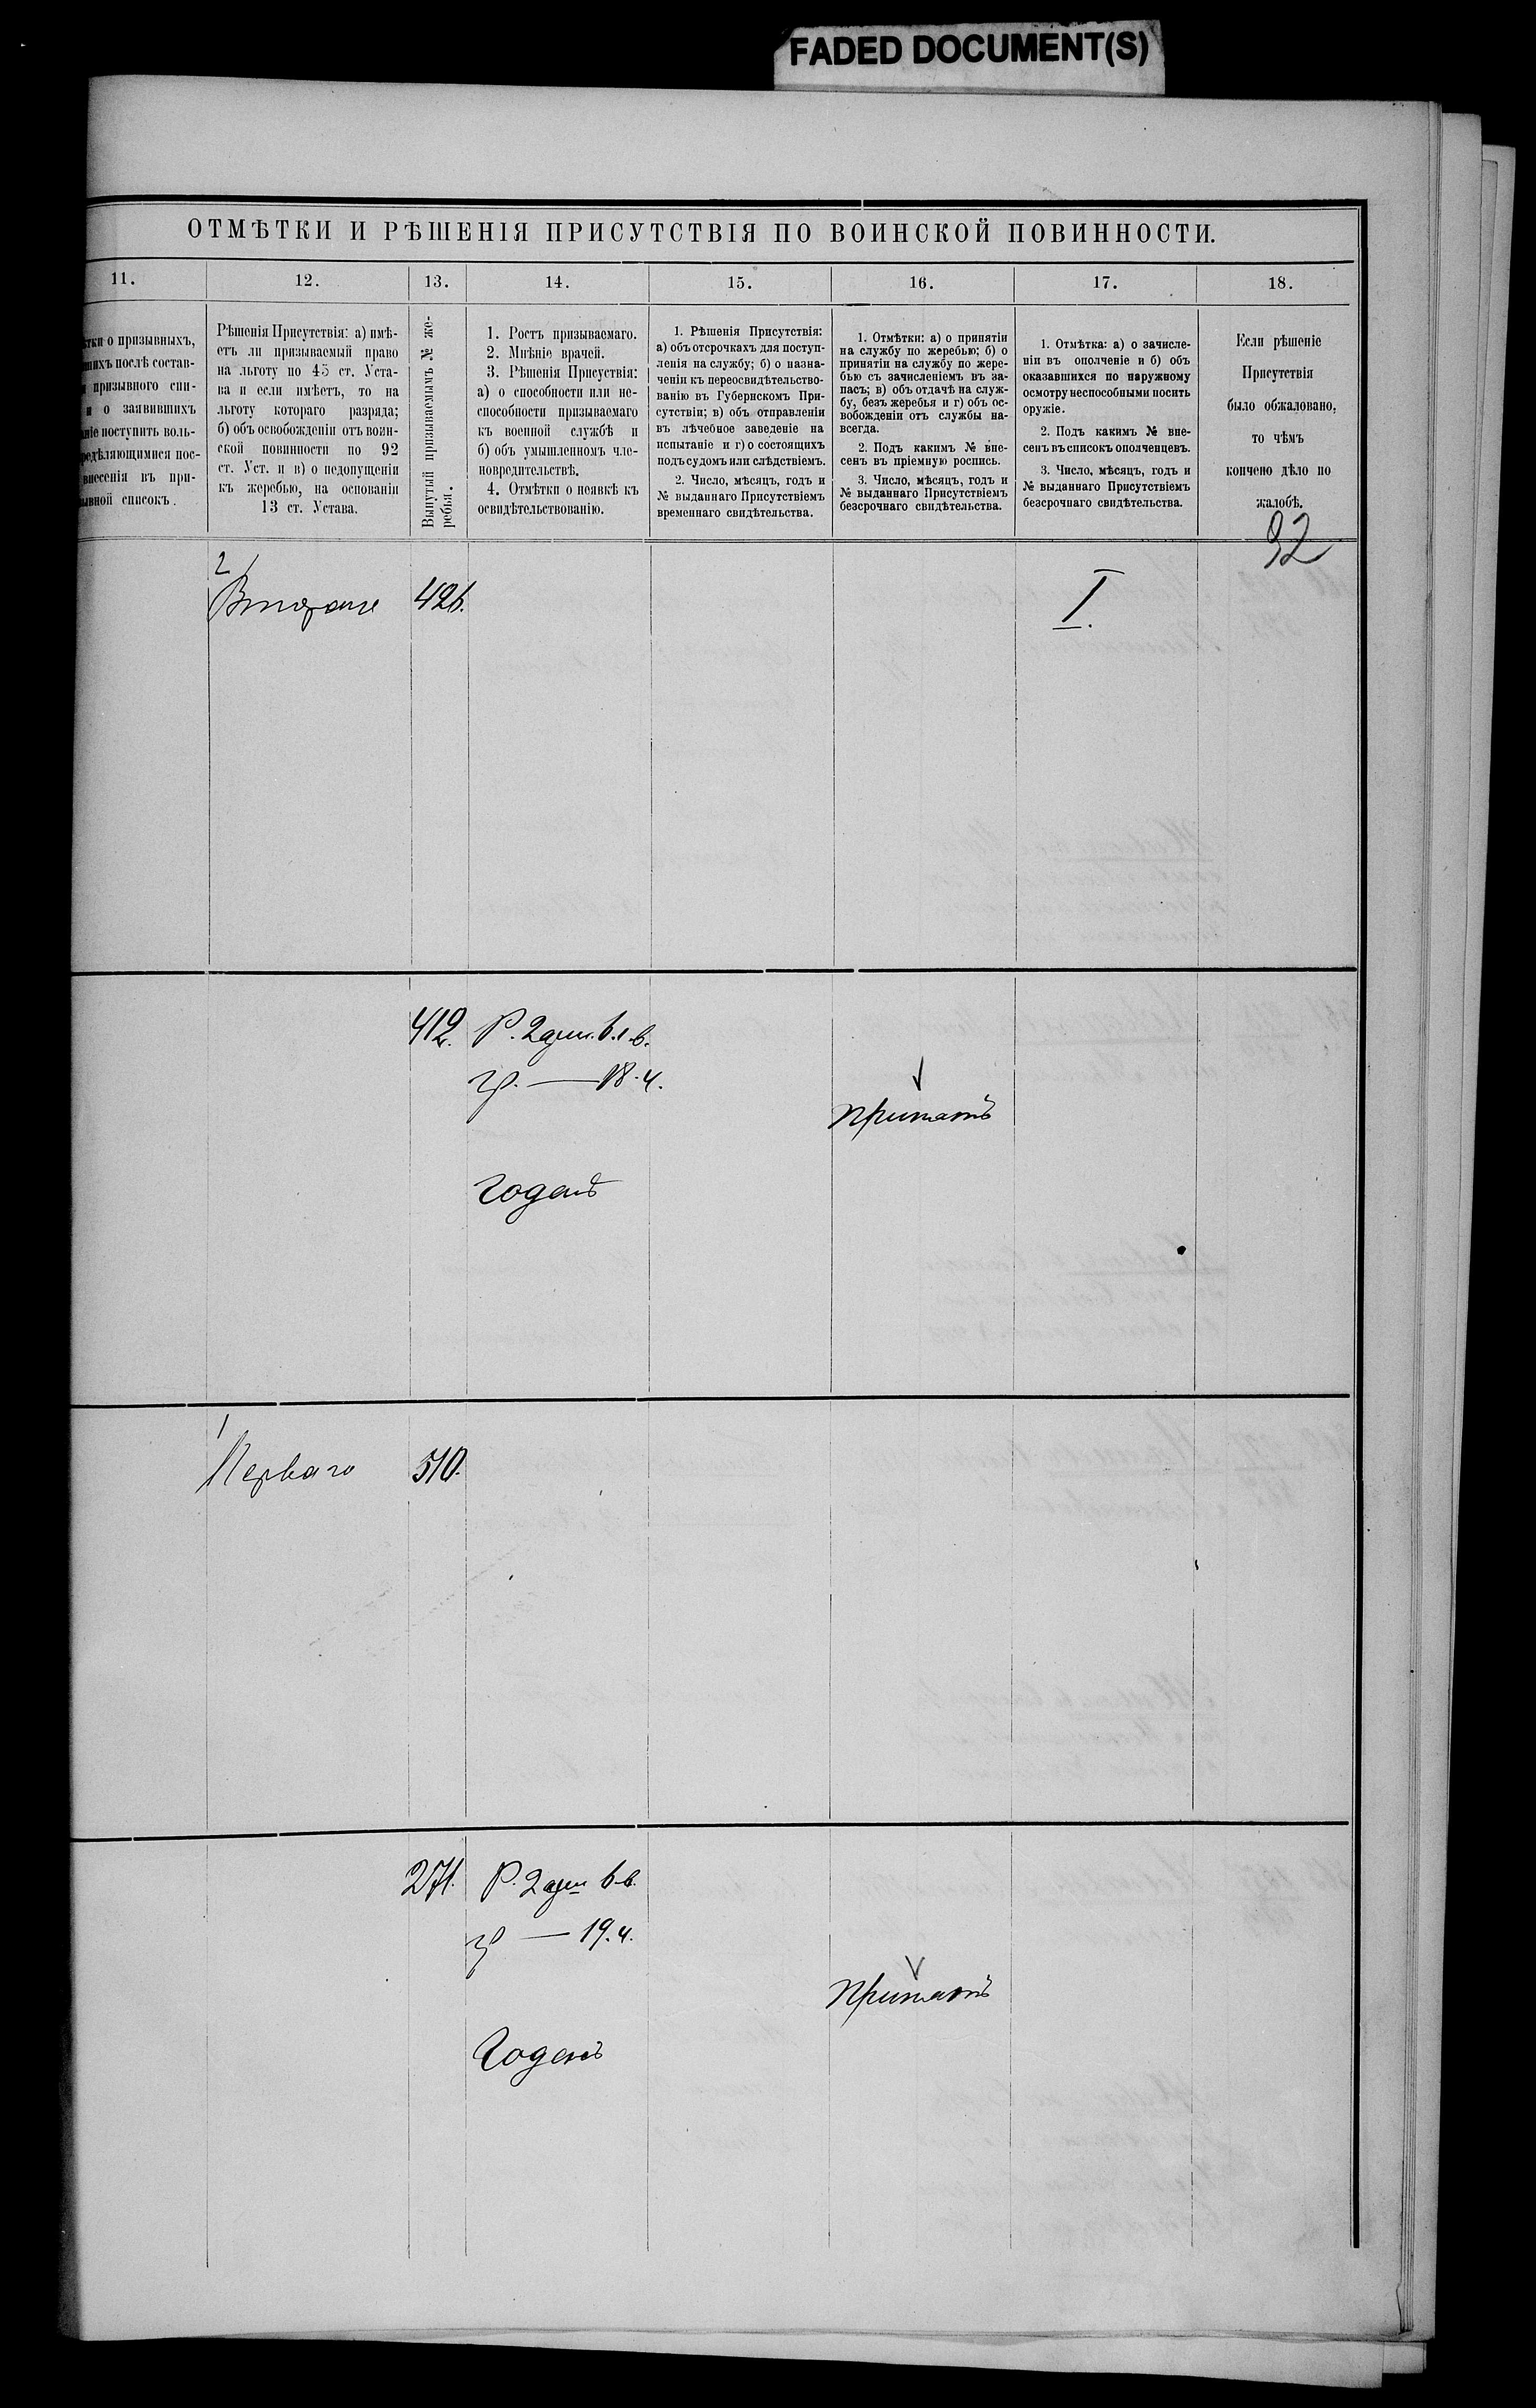 FADED DOCUMENT(S)
ОТМѢТКИ И РѢШЕНІЯ ПРИСУТСТВІЯ ПО ВОИНСКОЙ ПОВИННОСТИ.
11.
12.
13.
14.
15.
16.
17.
18.
тки о призывныхъ,
шихъ послѣ состав-
призывного спи-
и о заявившихъ
ніе поступить воль-
редѣляющимися пос-
внесенія въ при-
ывной списокъ.
Рѣшенія Присутствія: а) имѣ-
етъ ли призываемый право
на льготу по 45 ст. Уста-
ва и если имѣетъ, то на
льготу котораго разряда;
б) объ освобожденіи отъ воин-
ской повинности по 92
ст. Уст. и в) о недопущеніи
къ жеребью, на основаніи
13 ст. Устава.
Вынутый призываемымъ № же-
ребья.
1. Ростъ призываемаго.
2. Мнѣніе врачей.
3. Рѣшенія Присуствія:
а) о способности или не-
способности призываемаго
къ военной службѣ и
б) объ умышленномъ чле-
новредительствѣ.
4. Отмѣтки о неявкѣ къ
освидѣтельствованію.
1. Рѣшенія Присутствія:
а) объ отсрочкахъ для поступ-
ленія на службу; б) о назна-
ченіи къ переосвидѣтельство-
ванію въ Губернскомъ При-
сутствіи; в) объ отправленіи
въ лѣчебное заведеніе на
испытаніе и г) о состоящихъ
подъ судомъ или слѣдствіемъ.
2. Число, мѣсяцъ, годъ и
№ выданнаго Присутствіемъ
временнаго свидѣтельства.
1. Отмѣтки: а) о принятіи
на службу по жеребью; б) о
принятіи на службу по жере-
бью съ зачисленіемъ въ за-
пасъ; в) объ отдачѣ на служ-
бу, безъ жеребья и г) объ ос-
вобожденіи отъ службы на-
всегда.
2. Подъ какимъ № вне-
сенъ въ пріемную роспись.
3. Число, мѣсяцъ, годъ и
№ выданнаго Присутствіемъ
безсрочнаго свидѣтельства.
1. Отмѣтка: а) о зачисле-
ніи въ ополченіе и б) объ
оказавшихся по наружному
осмотру неспособными носить
оружіе.
2. Подъ какимъ № вне-
сенъ въ списокъ ополченцевъ.
3. Число, мѣсяцъ, годъ и
№ выданнаго Присутствіемъ
безсрочнаго свидѣтельства.
Если рѣшеніе
Присутствія
было обжаловано,
то чѣмъ
кончено дѣло по
жалобѣ.
92
2
Втораго 426. I.
412. Р. 2 арш. 6. в.
гр. — 18. ч.
принятъ
Годенъ
1
Перваго 510.
271. Р. 2 арш 6 в.
гр — 19. ч.
принятъ
Годенъ